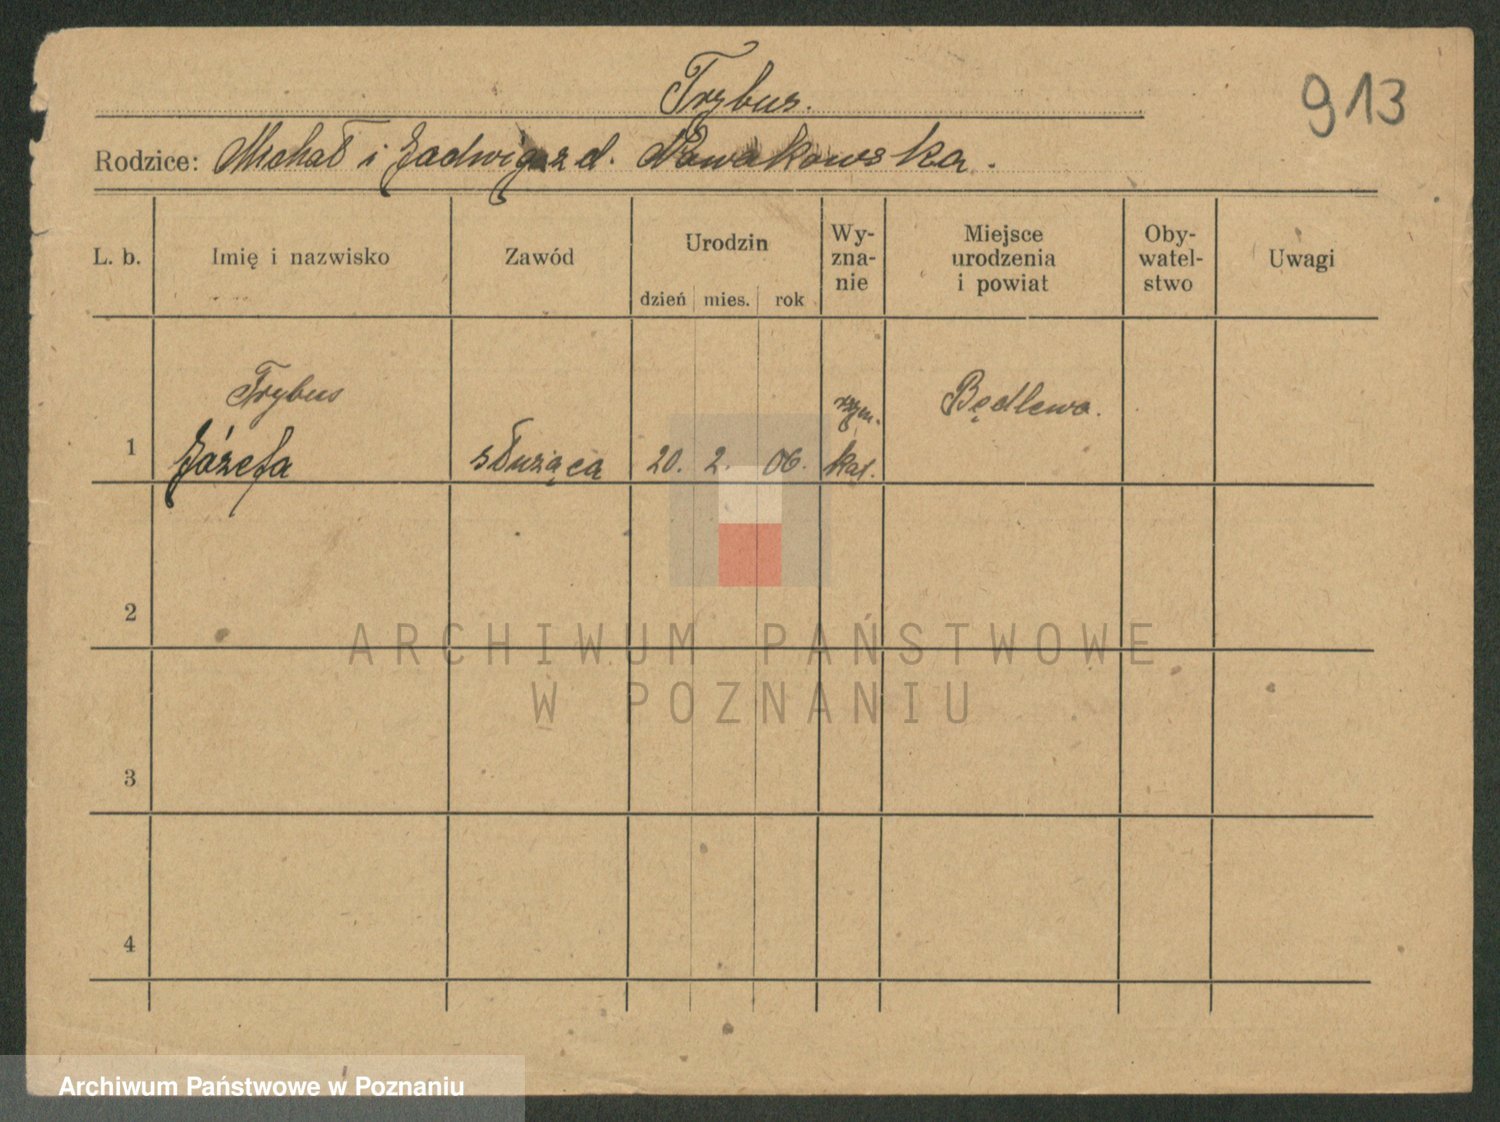 Trybus.
913
Rodzice: Michał i Jadwiga z d. Nowakowska.
L. b. Imię i nazwisko Zawód Urodzin dzień mies. rok Wy-zna-nie Miejsce urodzenia i powiat Oby-watel-stwo Uwagi
Trybus
rzym. Będlewo.
1 Józefa służąca 20. 2. 06. kat.
2
ARCHIWUM PAŃSTWOWE
W POZNANIU
3
4
Archiwum Państwowe w Poznaniu